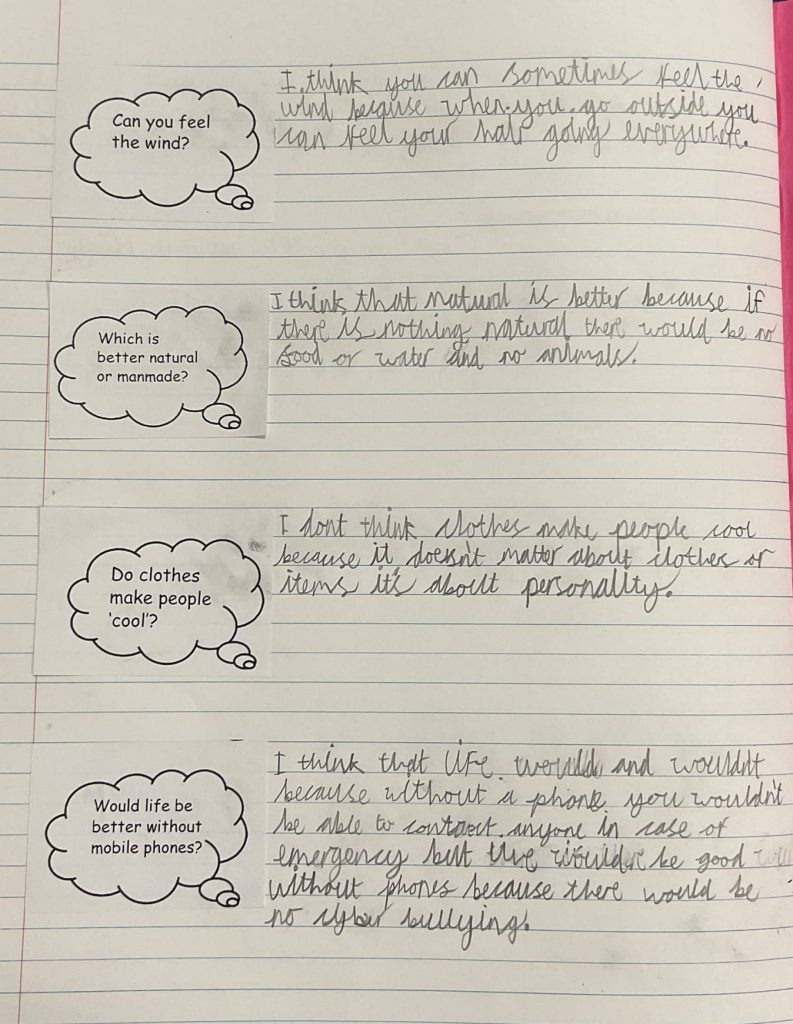 Can you feel
the wind?
I think you can sometimes feel the
wind because when you go outside you
can feel your hair going everywhere.
Which is
better natural
or manmade?
I think that natural is better because if
there is nothing natural there would be no
food or water and no animals.
Do clothes
make people
'cool'?
I dont think clothes make people cool
because it doesn't matter about clothes or
items it's about personality.
Would life be
better without
mobile phones?
I think that life would and wouldn't
because without a phone you wouldn't
be able to contact anyone in case of
emergency but be good
without phones because there would be
no cyber bullying.